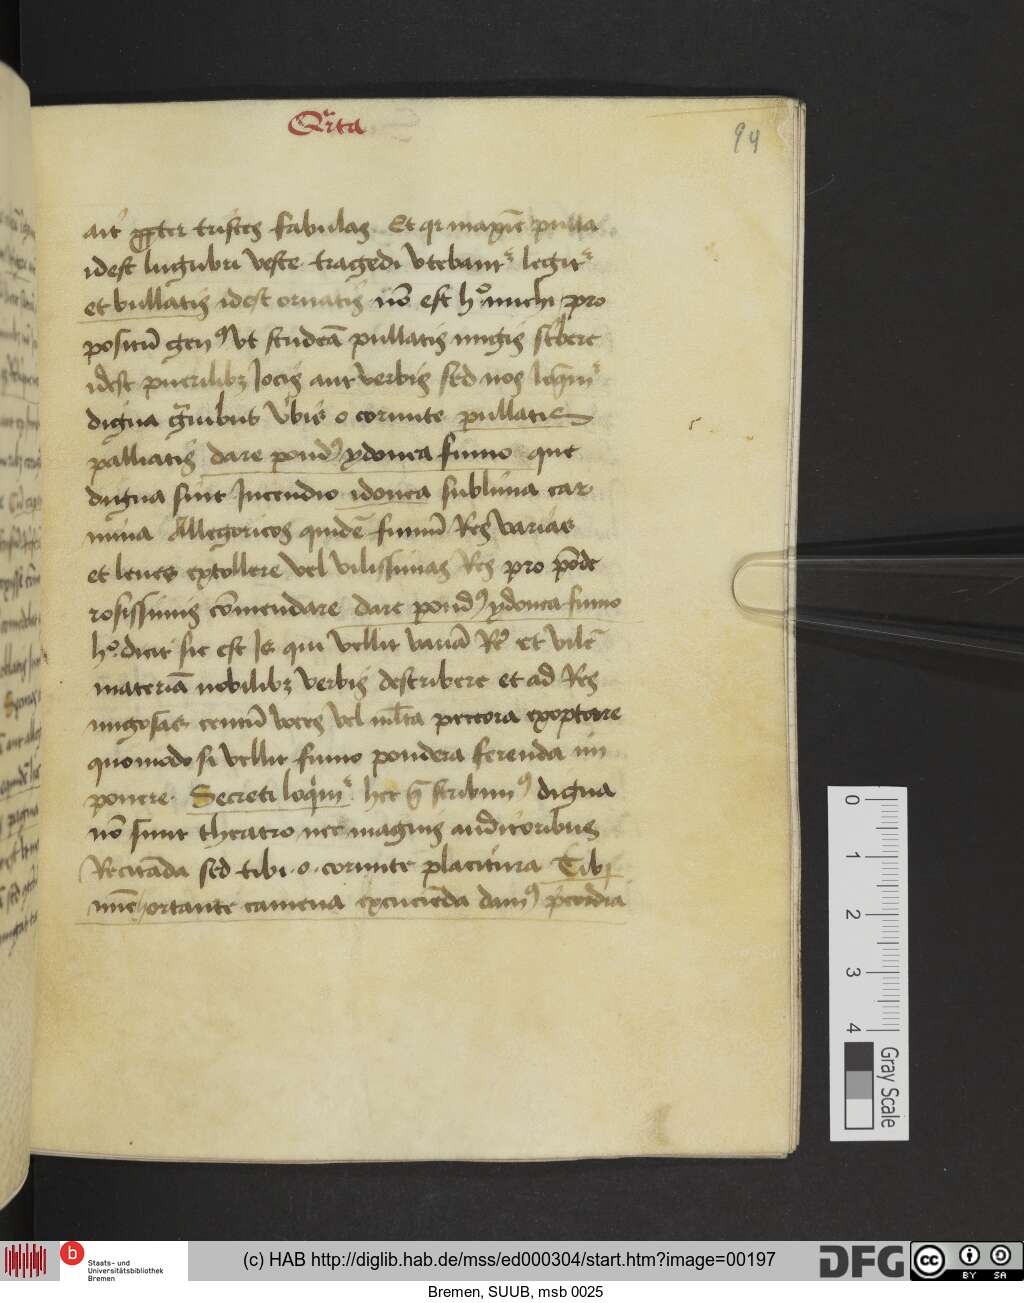 Qͬta
94
ait ꝓpter tristes fabulas Et qr magꝭ pulla
idest lugubri veste tragedi vtebantͬ legitͬ
et bullatis idest ornatis nō est hᵒ michi pro
positū genꝰ vt studeā pullatis nugis scͥbere
idest puerilibꝫ Iocis aut verbis sed nos loqͥmͬ
digna gͣuibus vͥbis o cornute pullatis
palliatis dare pondꝰ ydonea fumo que
digna sunt Incendio idonea sublima car
mina Allegoricos quidē fumū Res varias
et leues extollere vel vilissimas Res pro pōde
rosissimis cōmendare dare pondꝰ ydonea fumo
hᵒ dicit sic est Is qui vellit variā Rē et vilē
materiā nobilibꝫ verbis describere et ad Res
nugosas centū voces vel ml̄ta pectora exoptare
quomodo si vellit fumo pondera ferenda im
ponere Secreti loqͥmͬ hec gͦ scribimꝰ digna
nō sunt theatro nec magnis auditoribus
Recitāda sed tibi o cornute placitura Tibi
nūc hortante camena excuciēda damꝰ p̄cordia
0
1
2
3
4
Gray Scale
b
Staats- und
Universitätsbibliothek
Bremen
(c) HAB http://diglib.hab.de/mss/ed000304/start.htm?image=00197
DFG
cc
BY SA
Bremen, SUUB, msb 0025